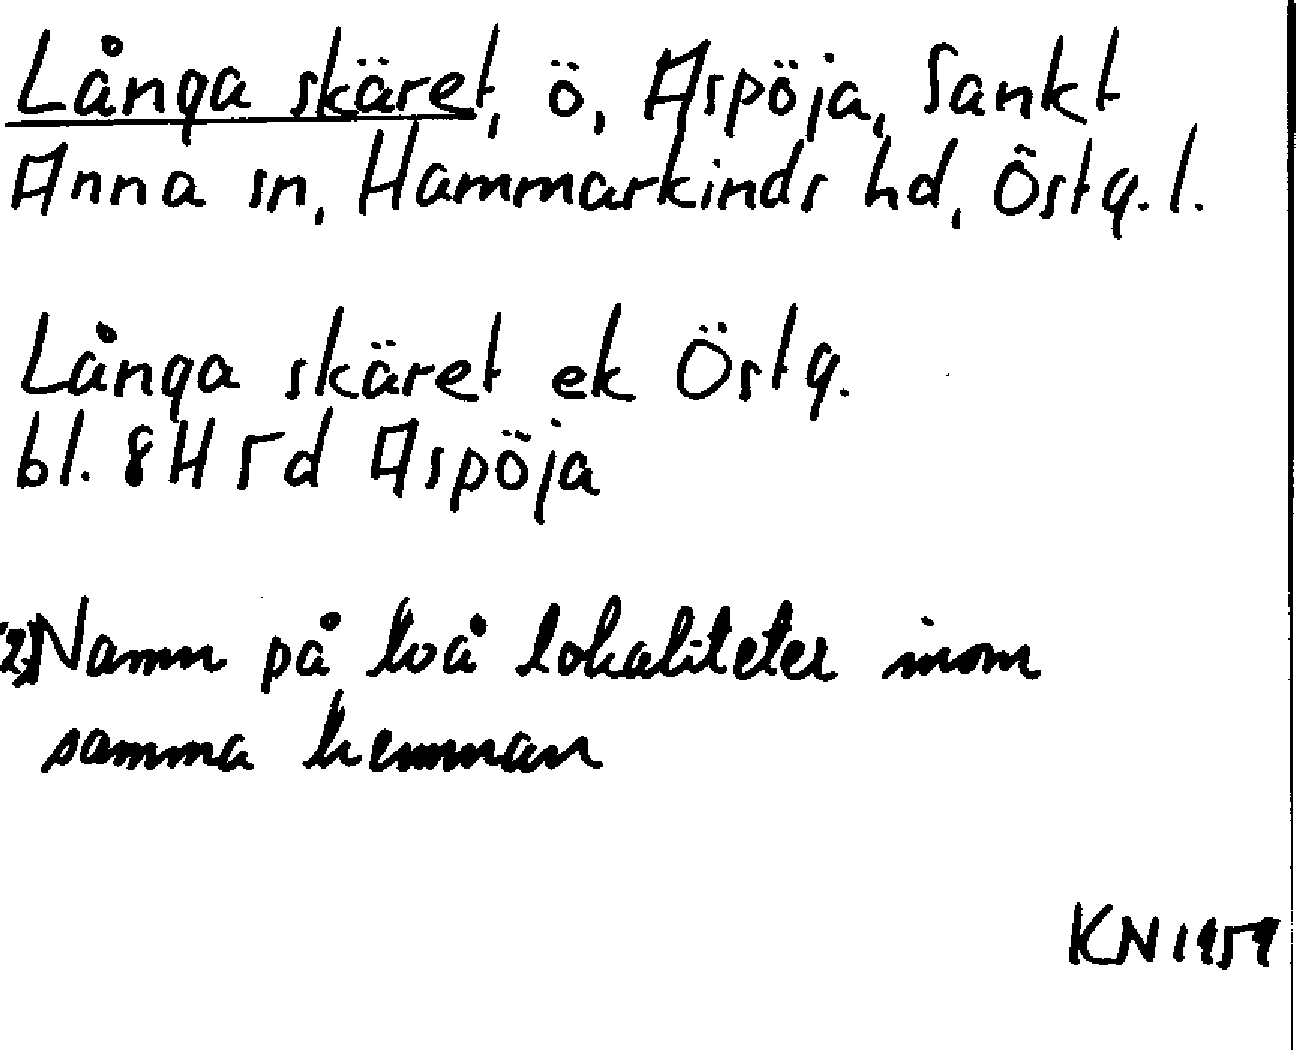 Långa skäret, ö, Aspöja, Sankt
Anna sn, Hammarkinds hd, Östg. l.
Långa skäret ek Östg.
bl. 8H 5d Aspöja
(2) Namn på två lokaliteter inom
samma hemman
KN 1959